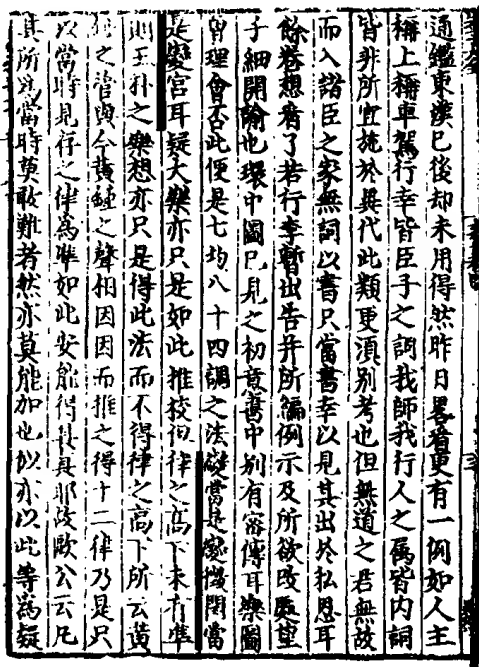 通鑑東漢已後却未用得然昨日畧看更有一例如人主
稱上稱車駕行幸皆臣子之詞我師我行人之屬皆內詞
皆非所宜施於異代此類更須別考也但無道之君無故
而入諸臣之家無詞以書只當書幸以見其出於私恩耳
餘卷想看了若行李暫出告并所編例示及所欲改更望
子細開諭也環中圖已見之初意書中別有密傳耳樂圖
曾理會否此便是七均八十四調之法礙當是變機閏當
是變宮耳疑大樂亦只是如此推按但律之高下未有準
則王朴之樂想亦只是得此法而不得律之高下所云黃
之管與今黃鍾之聲相因因而推之得十二律乃是只
以當時見存之律為準如此安能得其真耶故歐公云凡
其所為當時莫敢難者然亦莫能加也似亦以此等為疑